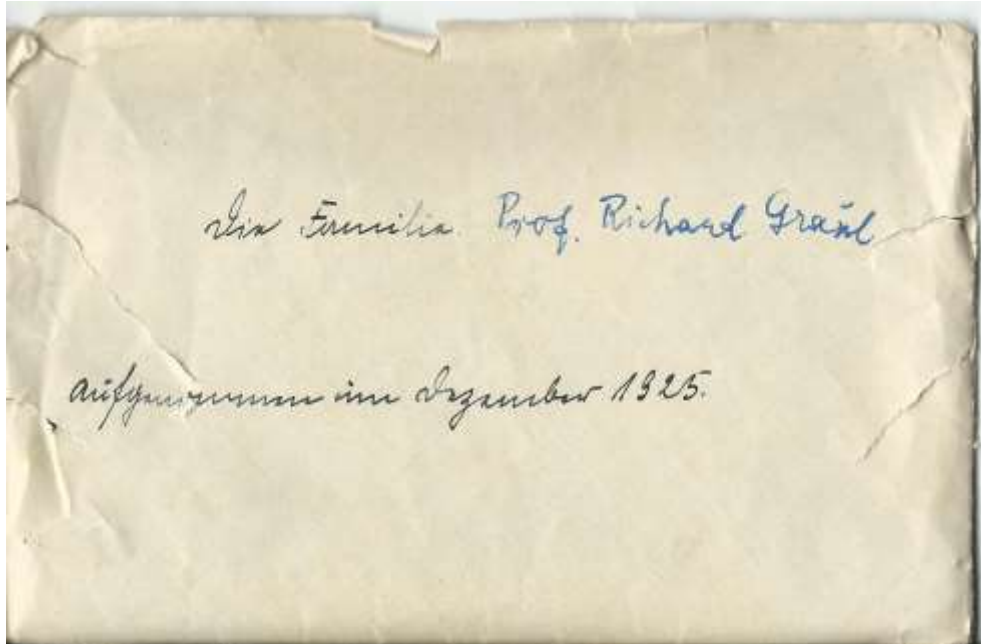 Die Familie Prof. Richard Graul
aufgenommen im Dezember 1925.